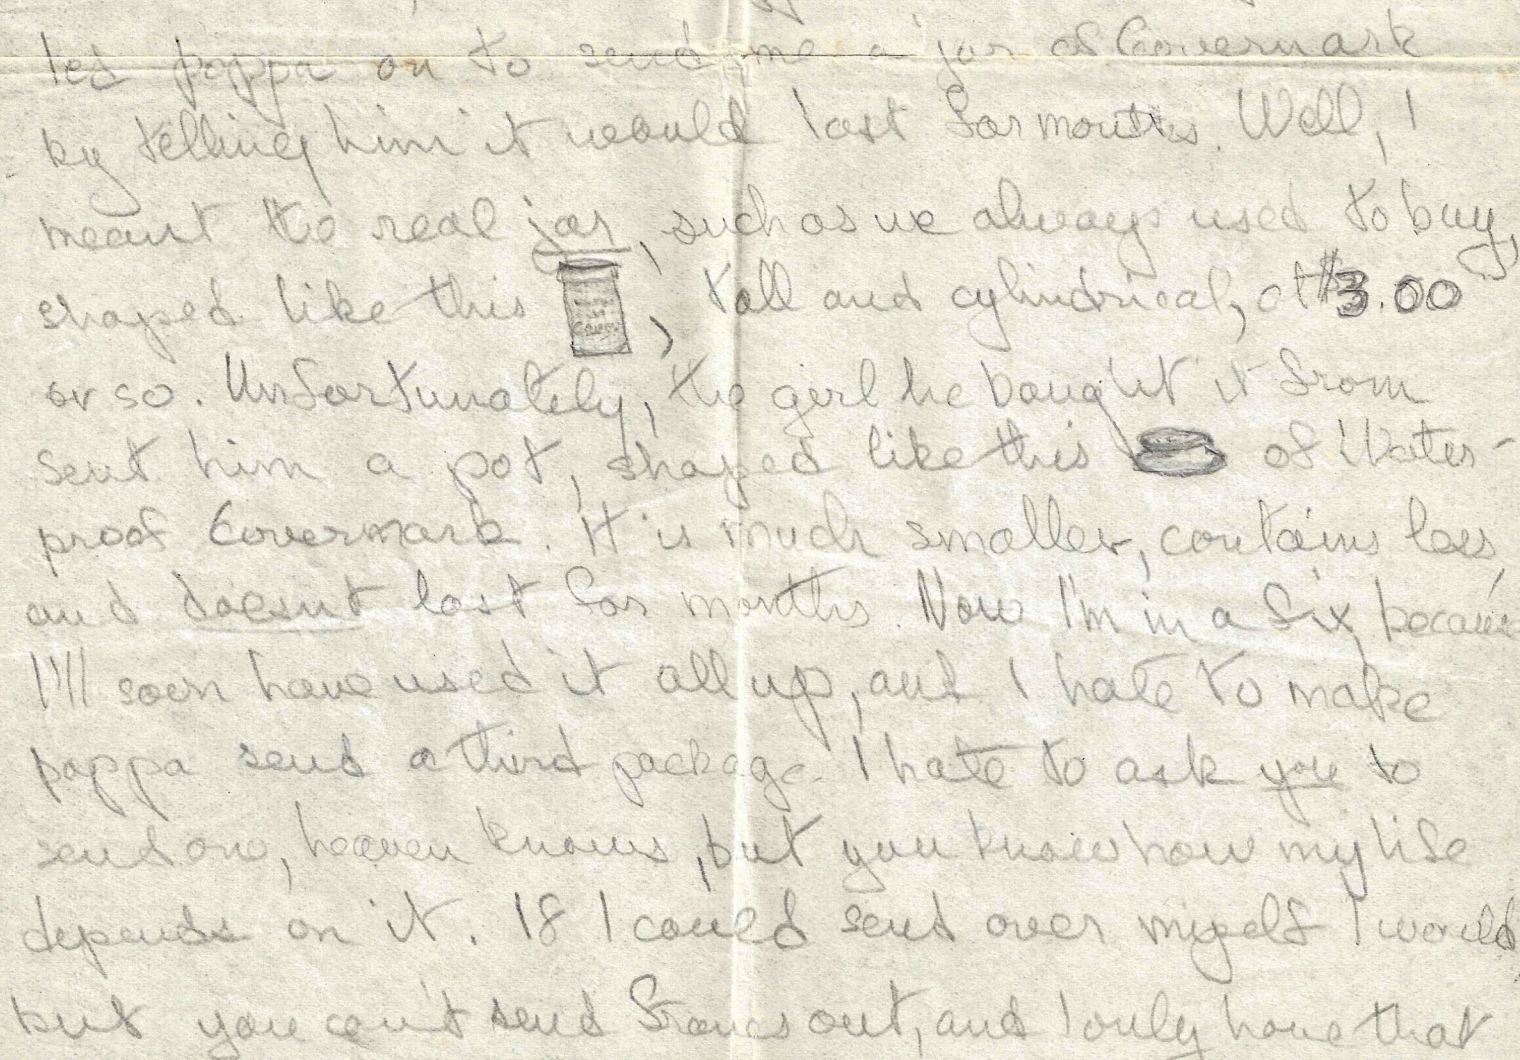 led poppa on to send me a jar of Covermark
by telling him it would last for months. Well, I
meant the real jar, such as we always used to buy,
shaped like this , tall and cylindrical, at $3.00
or so. Unfortunately, the girl he bought it from
sent him a pot, shaped like this of Water-
proof Covermark. It is much smaller, contains less,
and doesn't last for months. Now I'm in a fix, because
I'll soon have used it all up, and I hate to make
poppa send a third package. I hate to ask you to
send one, heaven knows, but you know how my life
depends on it. If I could send over myself I would,
but you can't send francs out, and I only have that